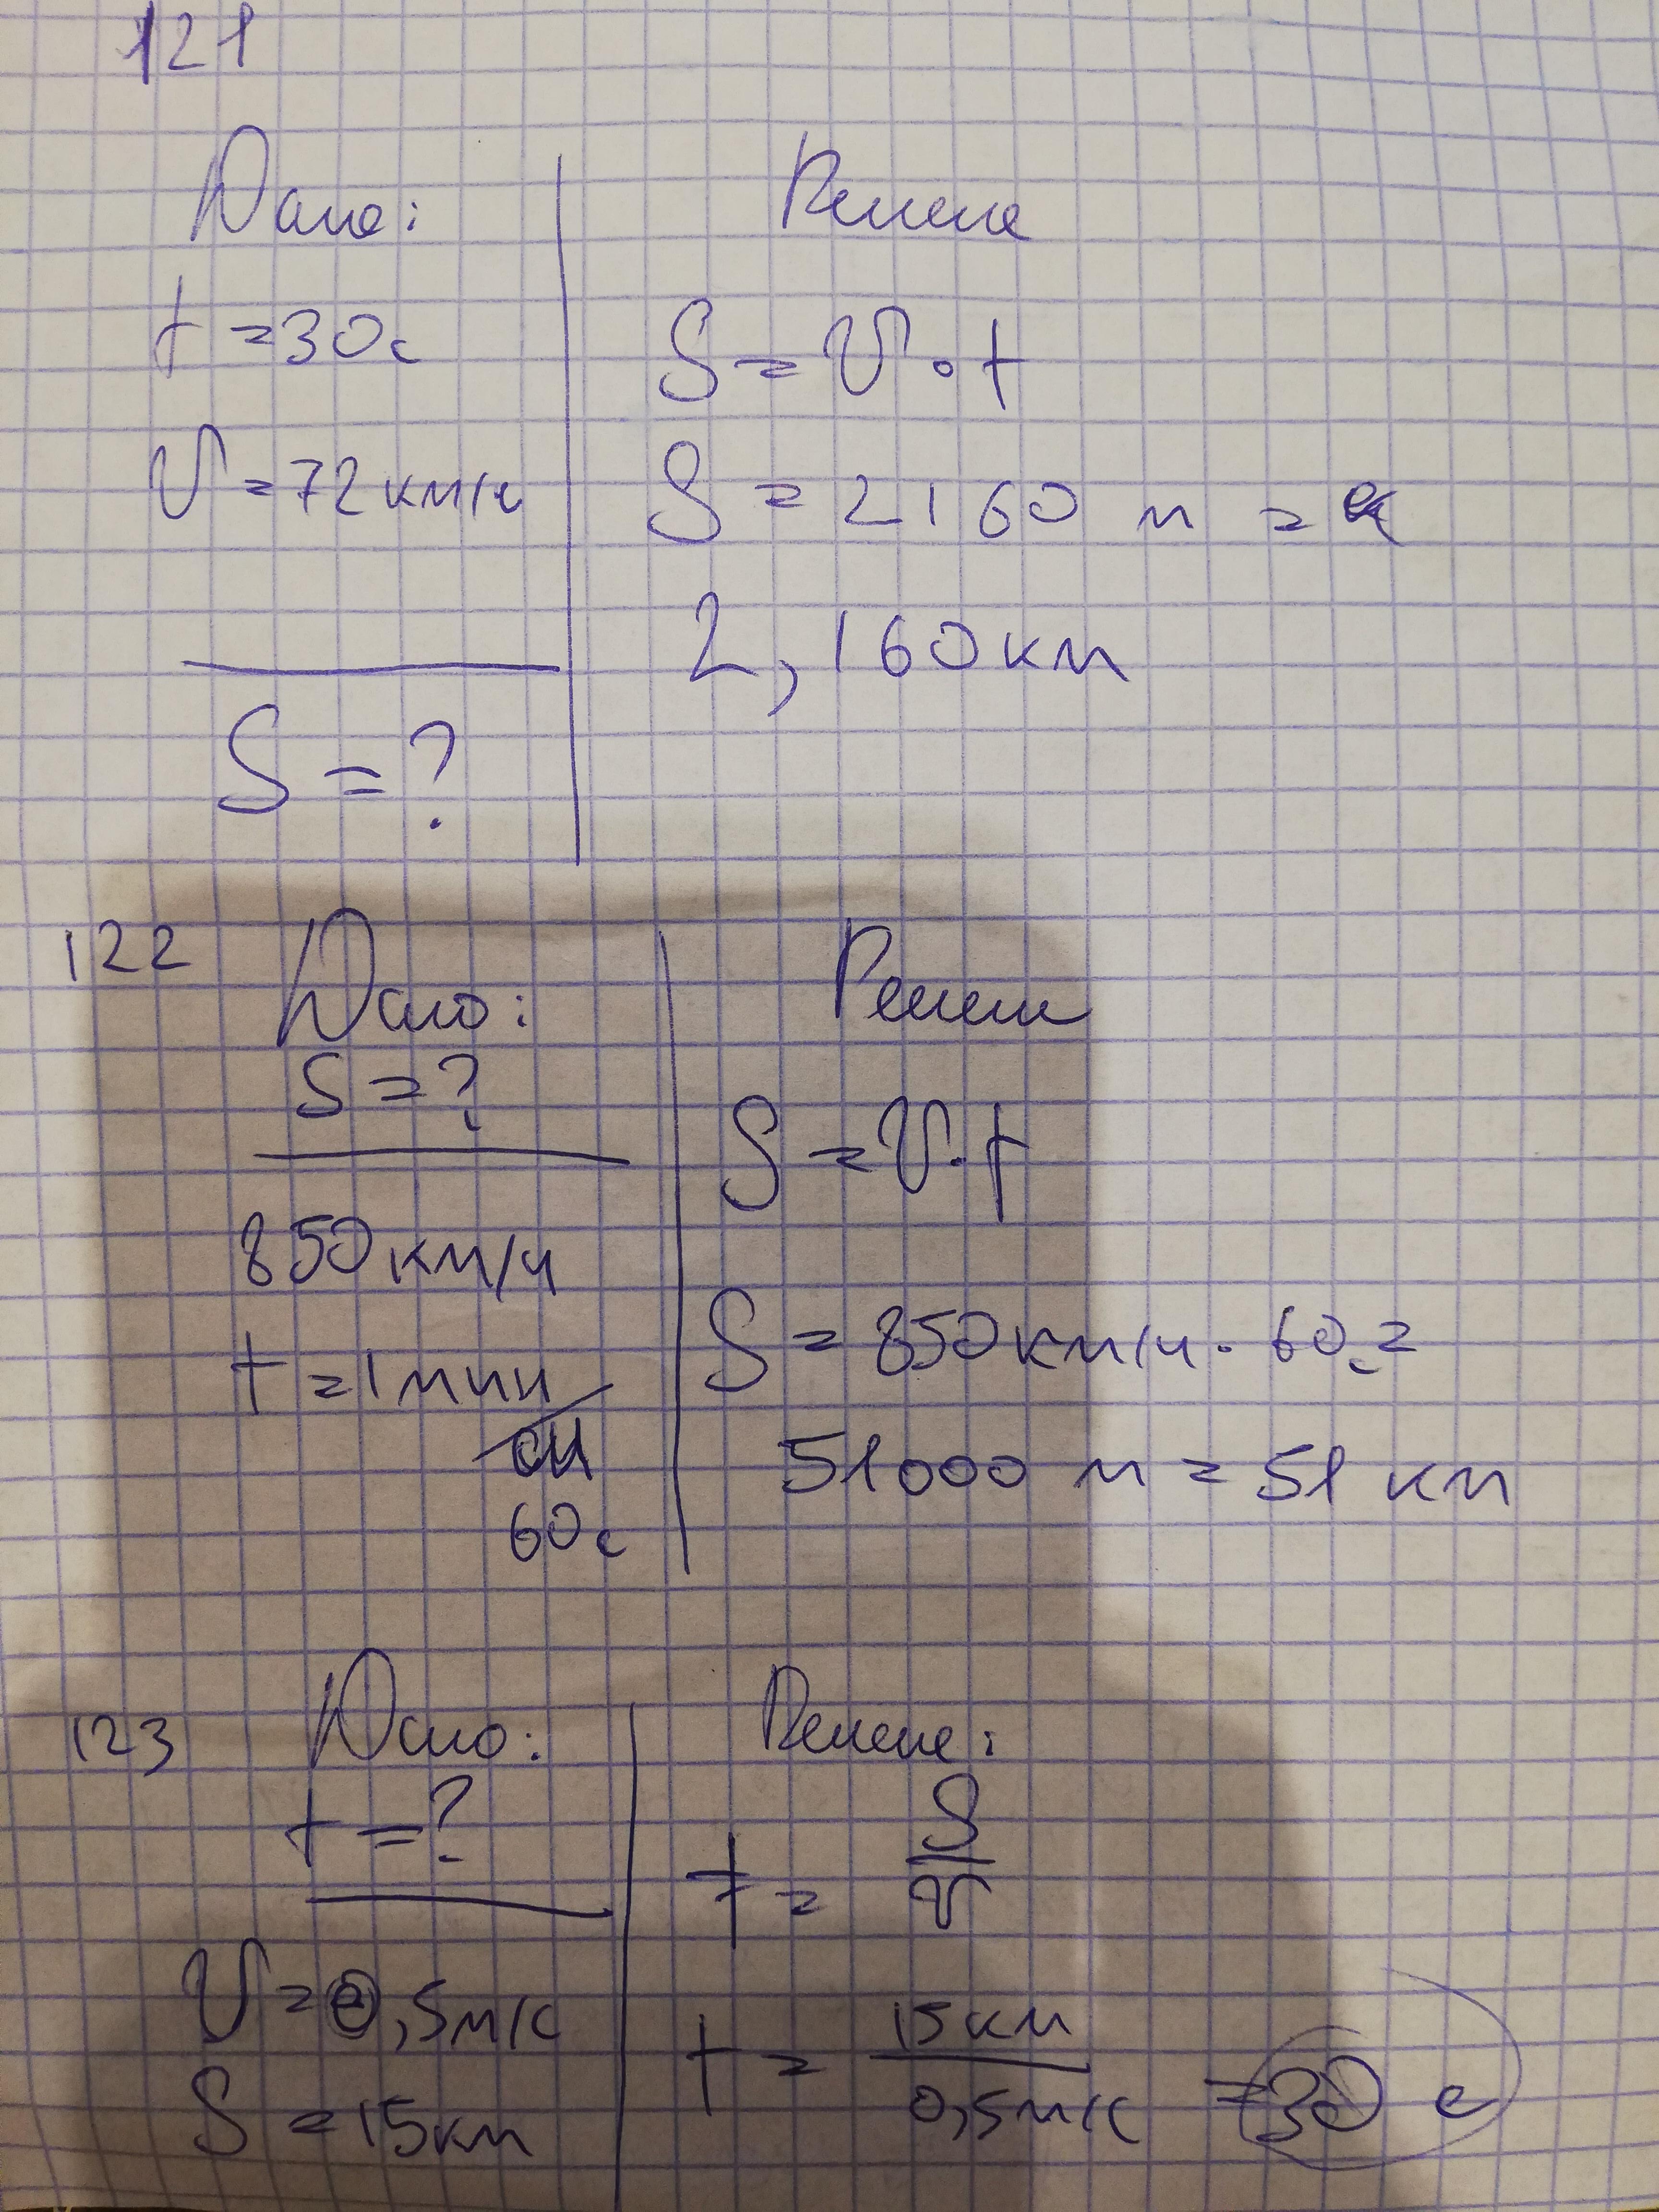 121
Дано:
t = 30 с
V = 72 км/ч
S = ?
Решение
S = V · t
S = 2160 м =
2,160 км
122
Дано:
S = ?
850 км/ч
t = 1 мин
60 с
Решени
S = V · t
S = 850 км/ч · 60 с =
51000 м = 51 км
123
Дано:
t = ?
V = 0,5 м/с
S = 15 км
Решение:
t = S/V
t = 15 км / 0,5 м/с = 30 с